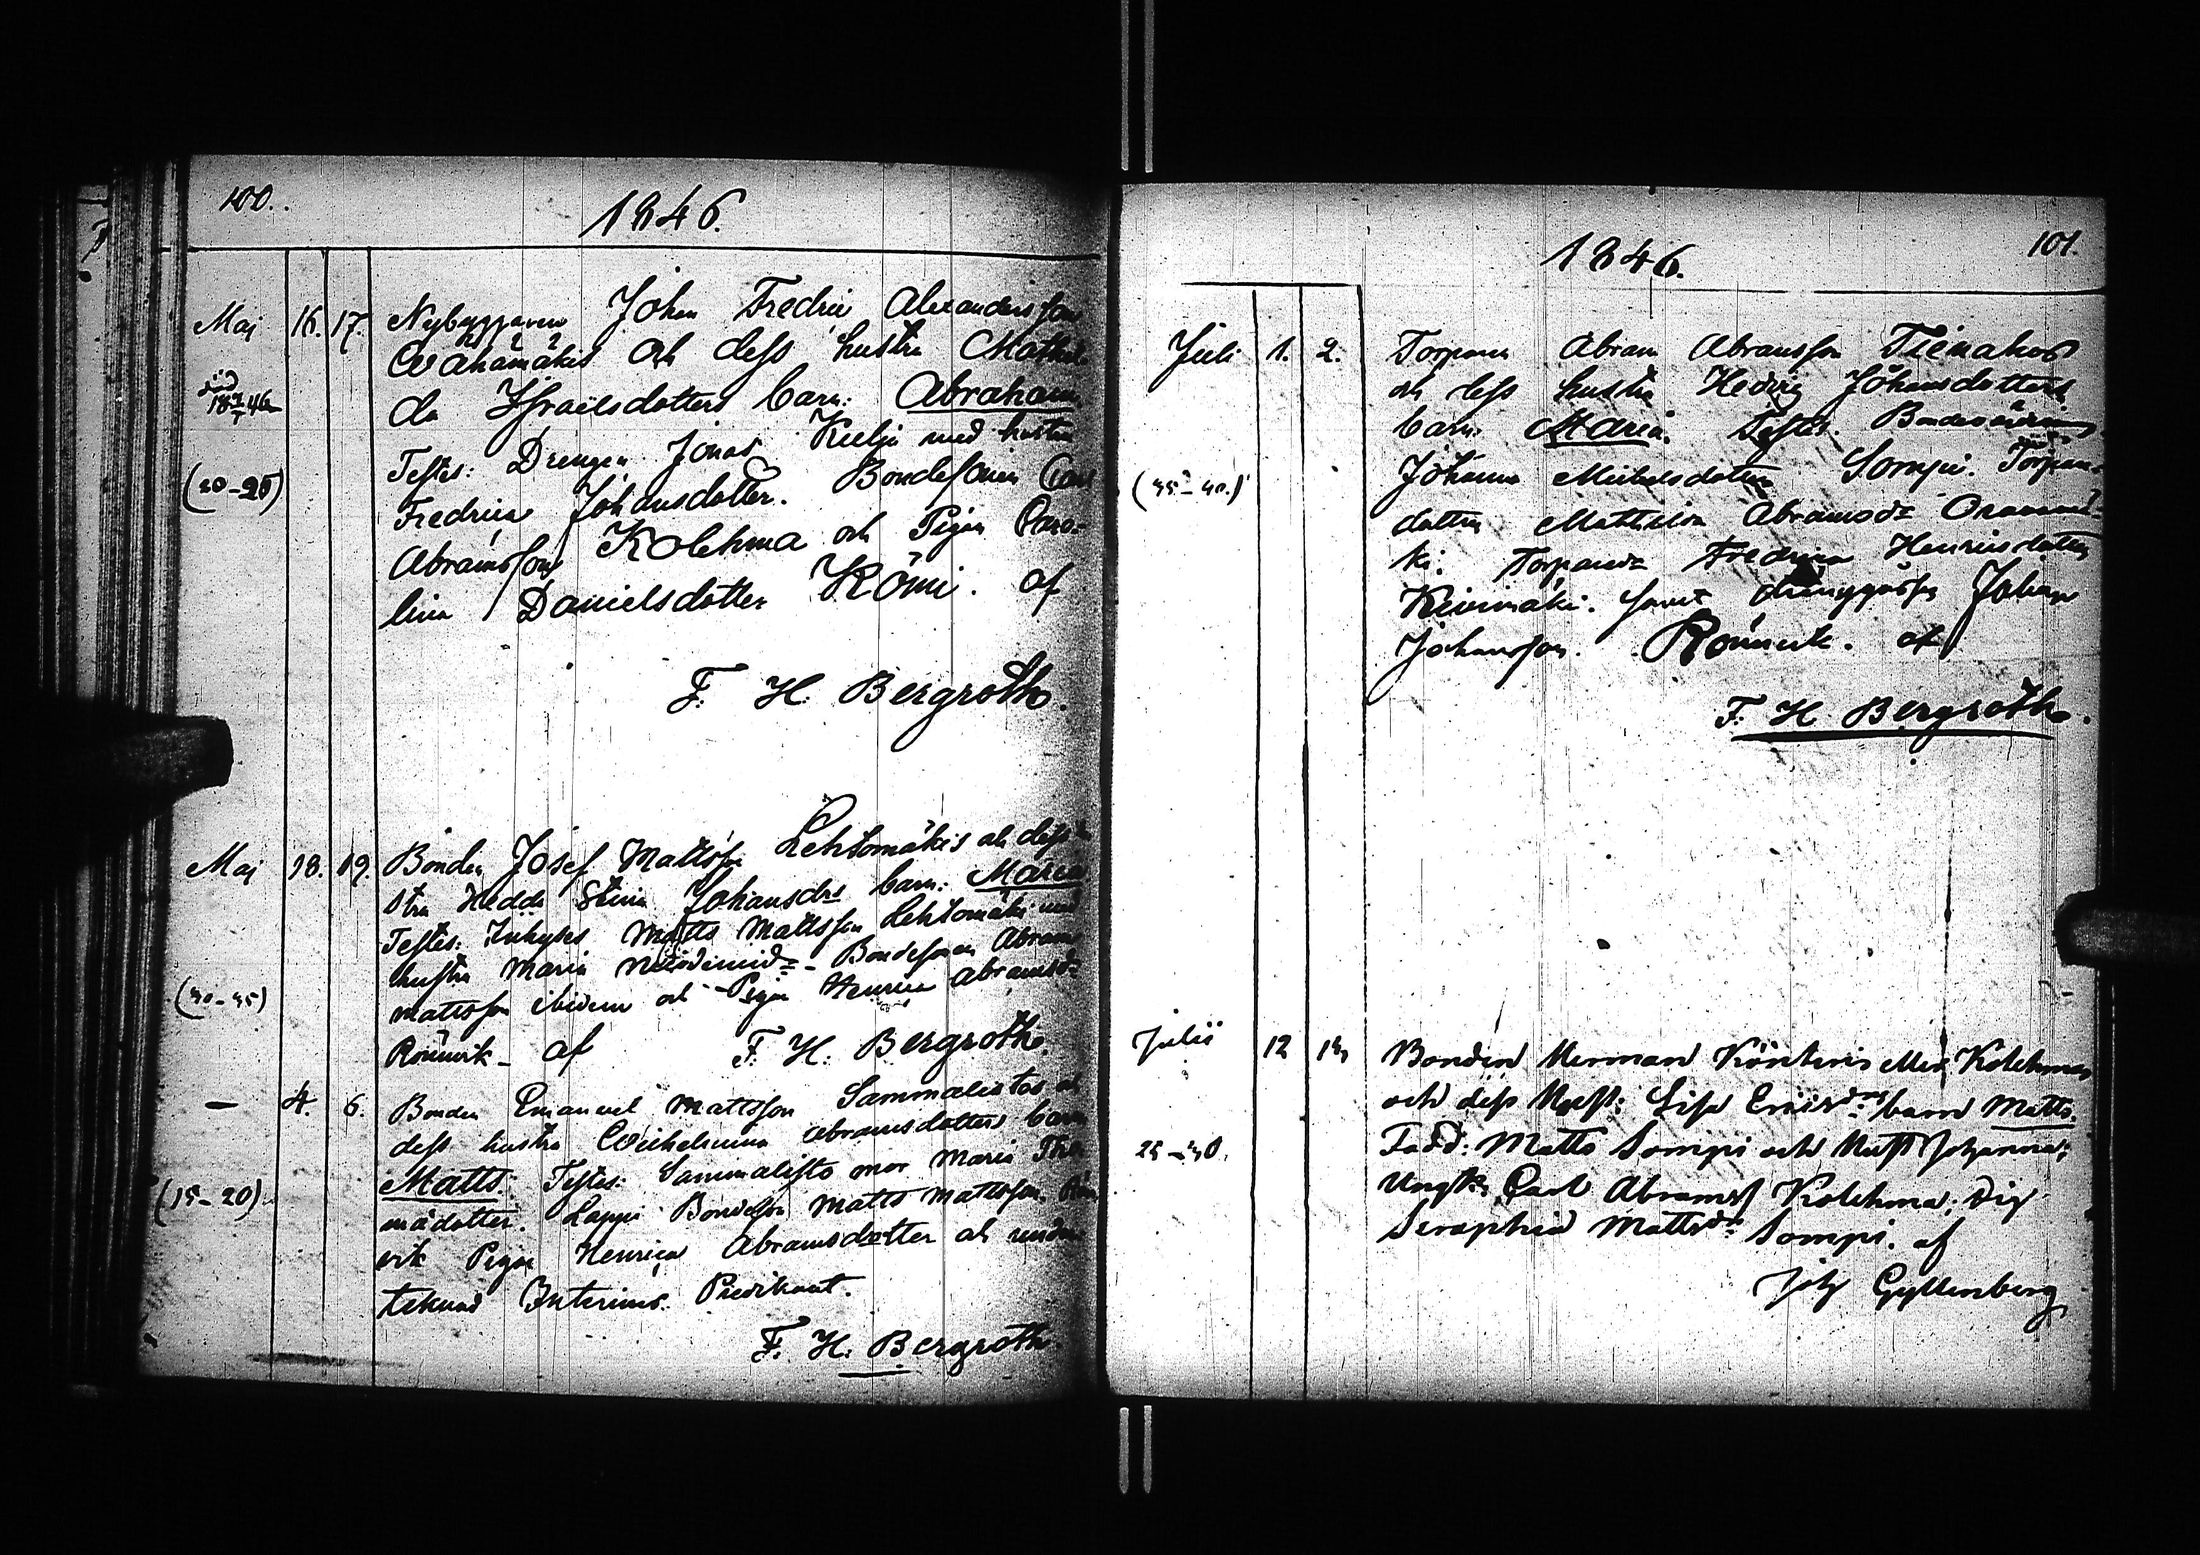 100.
1846.
Maj 16. 17. Nybyggaren Johan Fredric Alexandersson
död Wähämäkis och dess hustru Mathil-
da Israëlsdotters barn: Abraham.
(20-25) Testes: Drengen Jonas med hustru
Fredrica Johansdotter. Bondesonen Carl
Abramsson Kolehma och Pigan Caro-
lina Danielsdotter Römi. af
F. H. Bergroth.
Maj 18. 19. Bonden Josef Mattsson Lehtomäkis och dess
stru Hedda Stina Johansdrs barn: Maria
Testes: Matts Mattsson Lehtomäki med
hustru Maria Bondesonen Abram
(40-45) Mattsson ibidem och Pigan Henrica Abramsdr
Rönnvik- af F. H. Bergroth.
— 4. 6. Bonden Emanuel Mattsson Sammalistos och
dess hustru Wilhelmina Abramsdotters barn
(15-20) Matts: Testes: Sammalisto mor Maria
mädotter. Lappi Bondeson Matts Mattsson Rön
vik Pigan Henrica Abramsdotter och under
teknad Interims. Predikant.
F. H. Bergroth.
101.
1846.
Juli 1. 2. Torparen Abram Abramsson Tienahos
och dess hustru Hedvig Johansdotters
barn Maria. Testes. Bonde
(35-40.) Johanna Michelsdotter Sompi. Torpare-
dottren Mathilda Abramsdr
ki. Torparedr Fredrica Henricsdotter
Kivimäki. samt Johan
Johansson. Rönnvik. af
F. H. Bergroth.
Julii 12 14 Bonden Herman Köntens eller Kolehmas
och dess Hust: Lisa Ericsdrs barn Matts.
25-30. Fadd: Matts Sompi och Hust Johanna;
Ungk. Carl Abramss Kolehma; Pig
Seraphia Mattsdr Sompi. af
Joh Gyllenberg